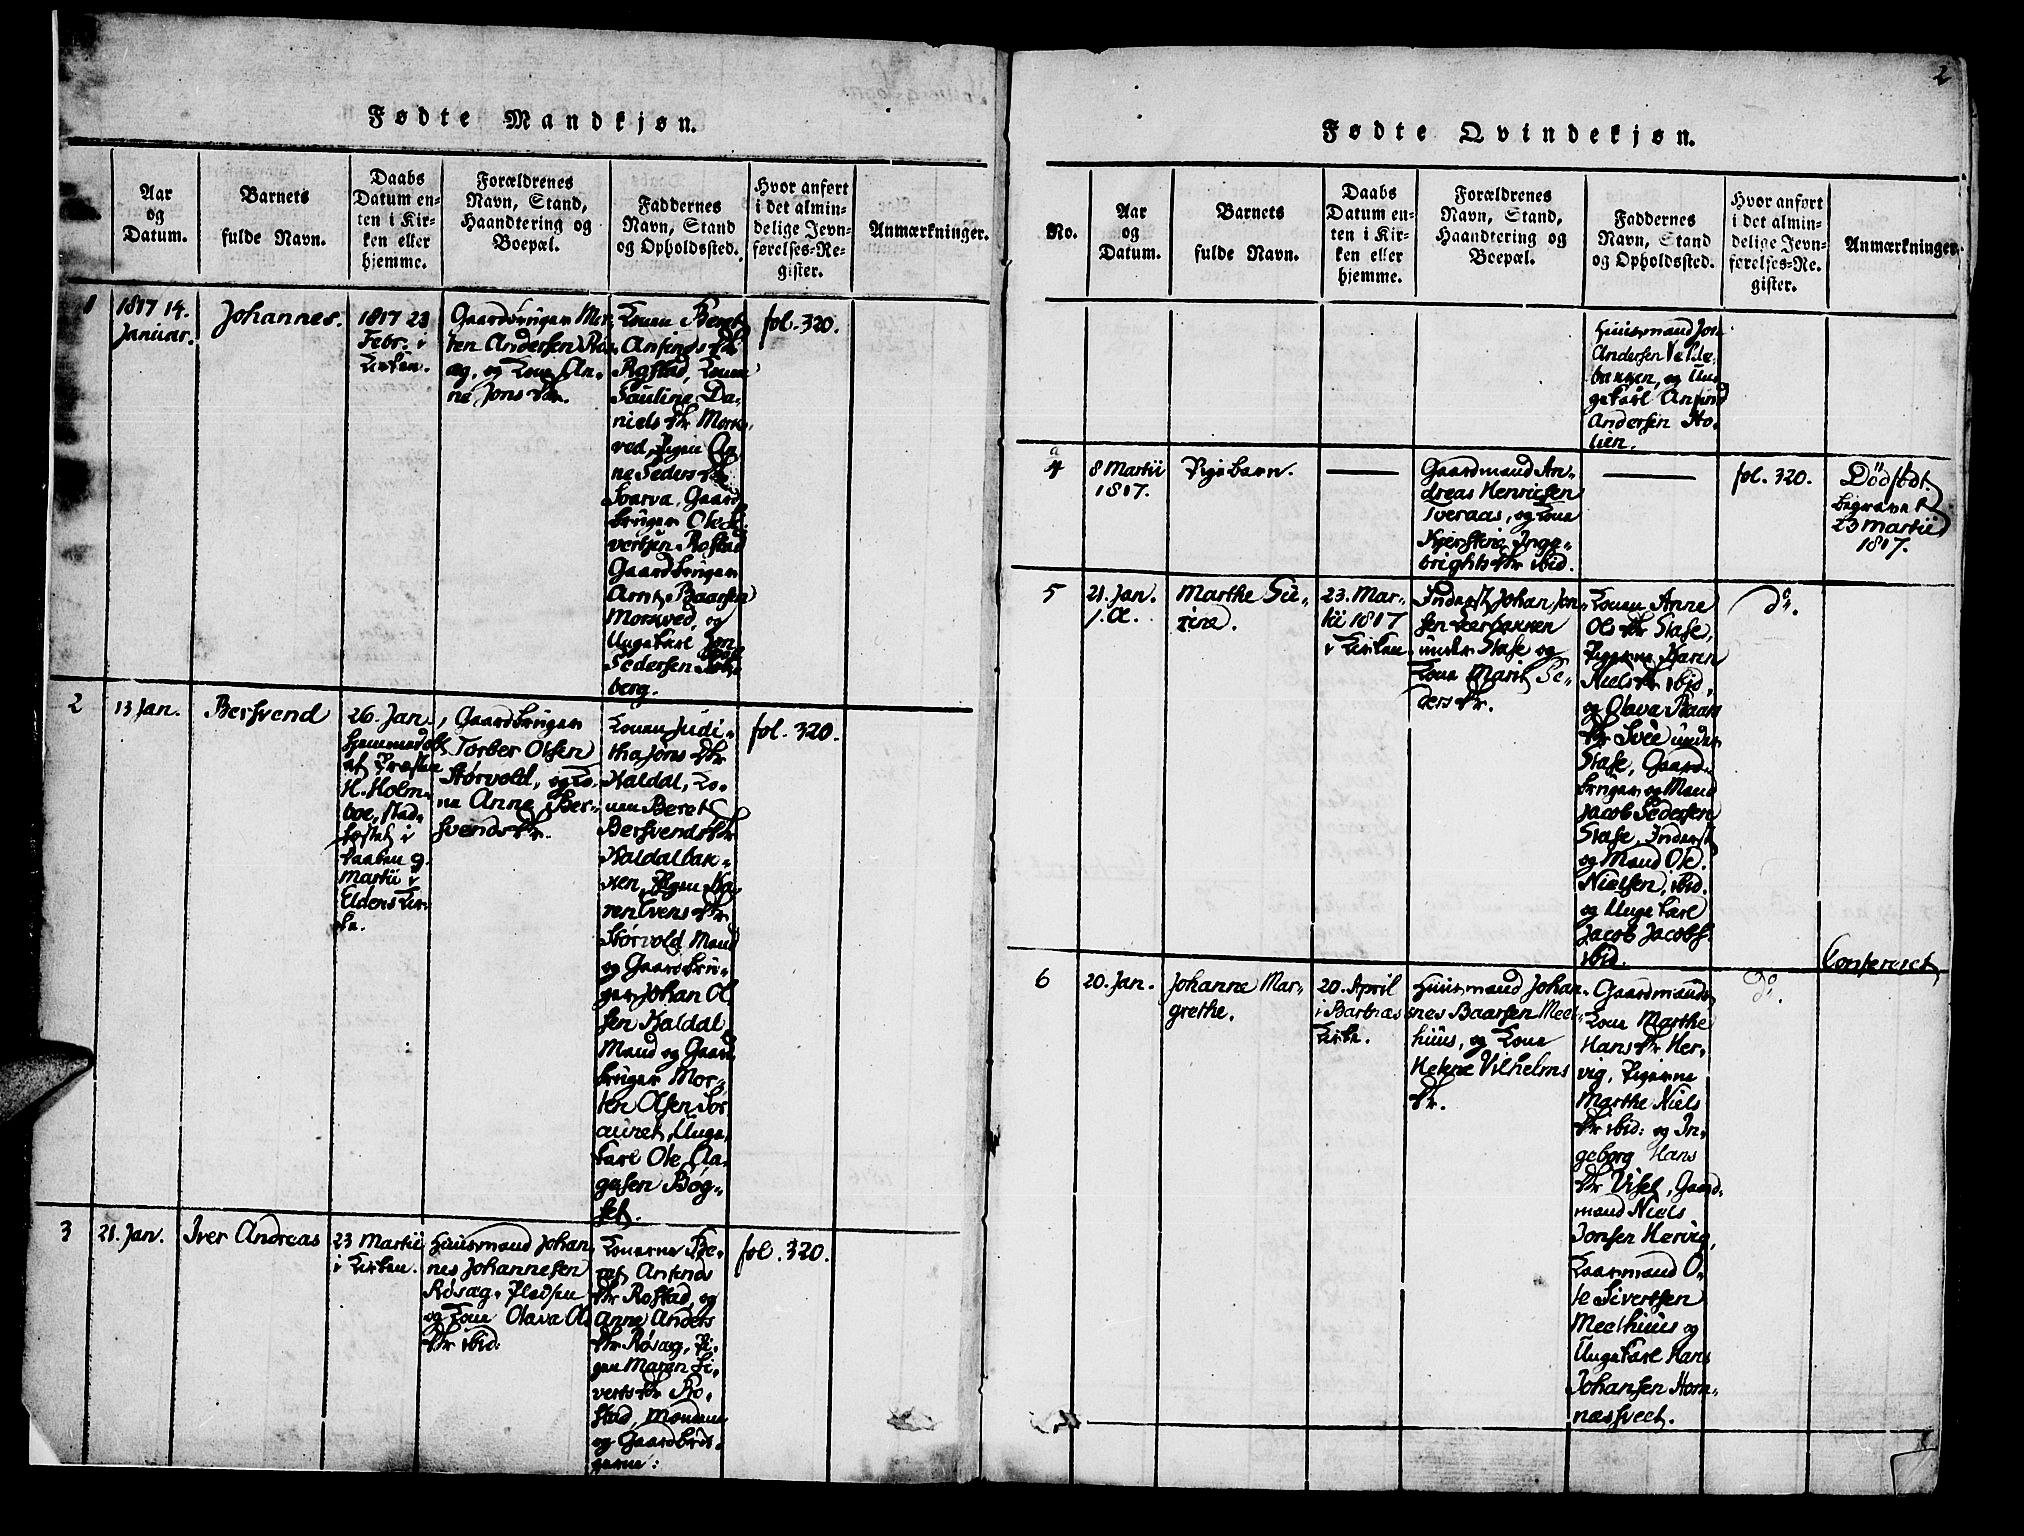 Fødte Mandkjøn.
Aar
og
Datum.
Barnets
fulde Navn.
Daabs
Datum en-
ten i Kir-
ken eller
hjemme.
Forældrenes
Navn, Stand,
Haandtering og
Boepæl.
Faddernes
Navn, Stand
og Opholdssted.
Hvor anført
i det almin-
delige Jevn-
førelses-Re-
gister.
Anmærkninger.
1
1817 14.
Januar.
Johannes.
1817 23
Febr. i
Kirken.
Gaardbruger Mor-
ten Andersen
og Kone An-
ne Jons Dtr.
Konen Beret
Anfinds Dtr
Rostad, Konen
Pauline Da-
niels Dtr Mork-
ved, Pigen An
ne Peders Dtr
Svarva, Gaard
bruger Ole Si-
vertsen Rostad
Gaardbruger
Arnt Baarsen
Morkved, og
Ungekarl Jon
Pedersen
berg.
fol. 320.
2
13 Jan.
Bersvend
26. Jan.
hjemmedøbt
af Præsten
H. Holm-
boe, stad-
fæstet i
Daaben 9.
Martii i
Eldens Kir-
ke.
Gaardbruger
Torber Olsen
Størvold, og Ko-
ne Anne Ber-
svends Dtr.
Konen Judi-
tha Jons Dtr
Kaldal, Ko-
nen Beret
Bersvends Dtr
Kaldalbak-
ken, Pigen Ka
ren Evens Dtr
Størvold Mand
og Gaardbru-
ger Johan Ol
sen Kaldal
Mand og Gaard
bruger Mor-
ten Olsen For
aunet, Unge
karl Ole Aa-
gesen Bog-
set.
fol. 320.
3
21. Jan.
Iver Andreas
23 Martii
i Kirken.
Huusmand Johan
nes Johannesen
Røsæg. Pladsen
og Kone Olava Ol
Dtr ibid:
Konerne Be-
ret Anfinds
Dtr Rostad, og
Anne Anders
Dtr Røsæg, Pi-
gen Maren Si-
verts Dtr Ro-
stad, Mændene
og Gaardbrù-
gerne:
fol. 320.
2
Fødte Qvindekjøn.
No.
Aar
og
Datum.
Barnets
fulde Navn.
Daabs
Datum en-
ten i Kir-
ken eller
hjemme.
Forældrenes
Navn, Stand,
Haandtering og
Boepæl.
Faddernes
Navn, Stand
og Opholdssted.
Hvor anført
i det almin-
delige Jevn-
førelses-Re-
gister.
Anmærkninger.
Huusmand Jon
Andersen
bakken, og Un-
gekarl Anfind
Andersen Ho-
lien.
a
4
8 Martii
1817.
Pigebarn.
Gaardmand An-
dreas Henricsen
Tveraas, og Kone
Kjerstine Inge-
brights Dtr ibid.
fol. 320.
Dödfödt
begravet
23 Martii
1817.
5
21. Jan.
Marthe Se-
rine.
23. Mar-
tii 1817
i Kirken
Inderst Johan Jon-
sen Leerbakken
under Stafe og
Kone Marit Pe-
ders Dtr.
Konen Anne
Ols Dtr Stafe,
Pigerne Karen
Niels Dtr ibid,
og Olava Baars
Dtr Svee under
Stafe, Gaard-
bruger og Mand
Jacob Pedersen
Stafe, Inderst
og Mand Ole
Nielsen, ibid.
og Ungekarl
Jacob Jacobs.
ibid.
do.
Confereret
6
20. Jan.
Johanne Mar-
grethe.
20. April
i Barnæs
Kirke.
Huusmand Johan-
nes Baarsen Meel-
huus, og Kone
Helene Vilhelms
Dtr.
Gaardmands
Kone Marthe
Hans Dtr Her-
vig, Pigerne
Marthe Niels
Dtr ibid: og In-
geborg Hans
Dtr Viset, Gaard-
mand Niels
Jonsen Hervig,
Gaarmand O-
le Sivertsen
Meelhuus og
Ungekarl Hans
Johansen Horn-
næssveet.
do.